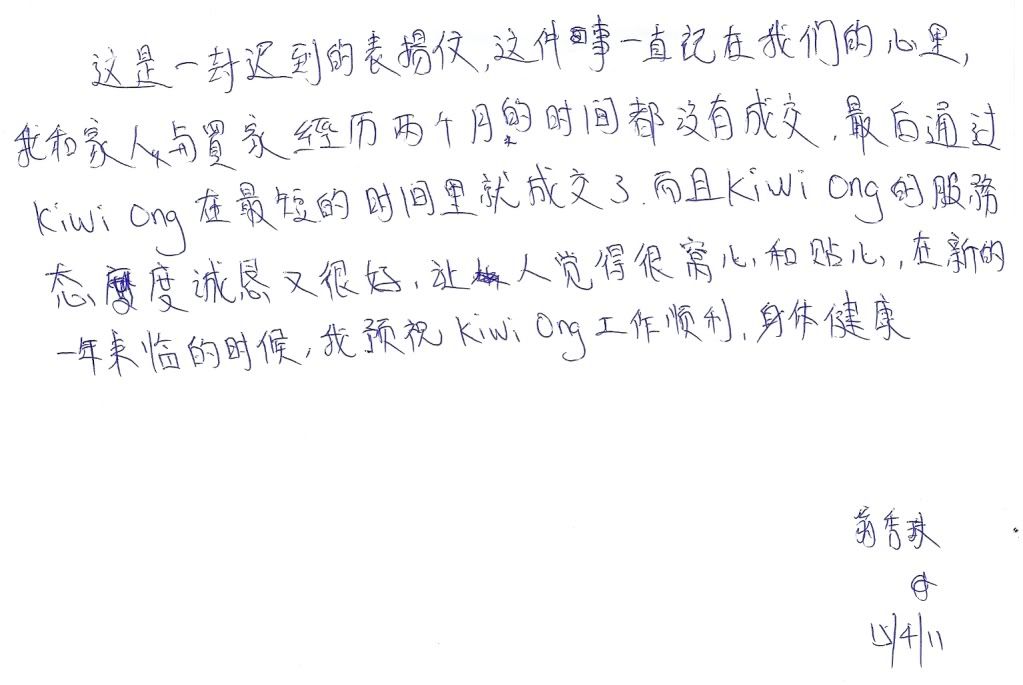 这是一封迟到的表揚仪,这件事一直记在我们的心里,
我和家人与買家經历两个月的时间都没有成交.最后通过
Kiwi Ong在最短的时间里就成交了.而且Kiwi Ong的服務
态度诚恳又很好.让人觉得很窝心和贴心,在新的
一年来临的时候,我预祝Kiwi Ong工作顺利.身体健康
翁秀珠
15/4/11